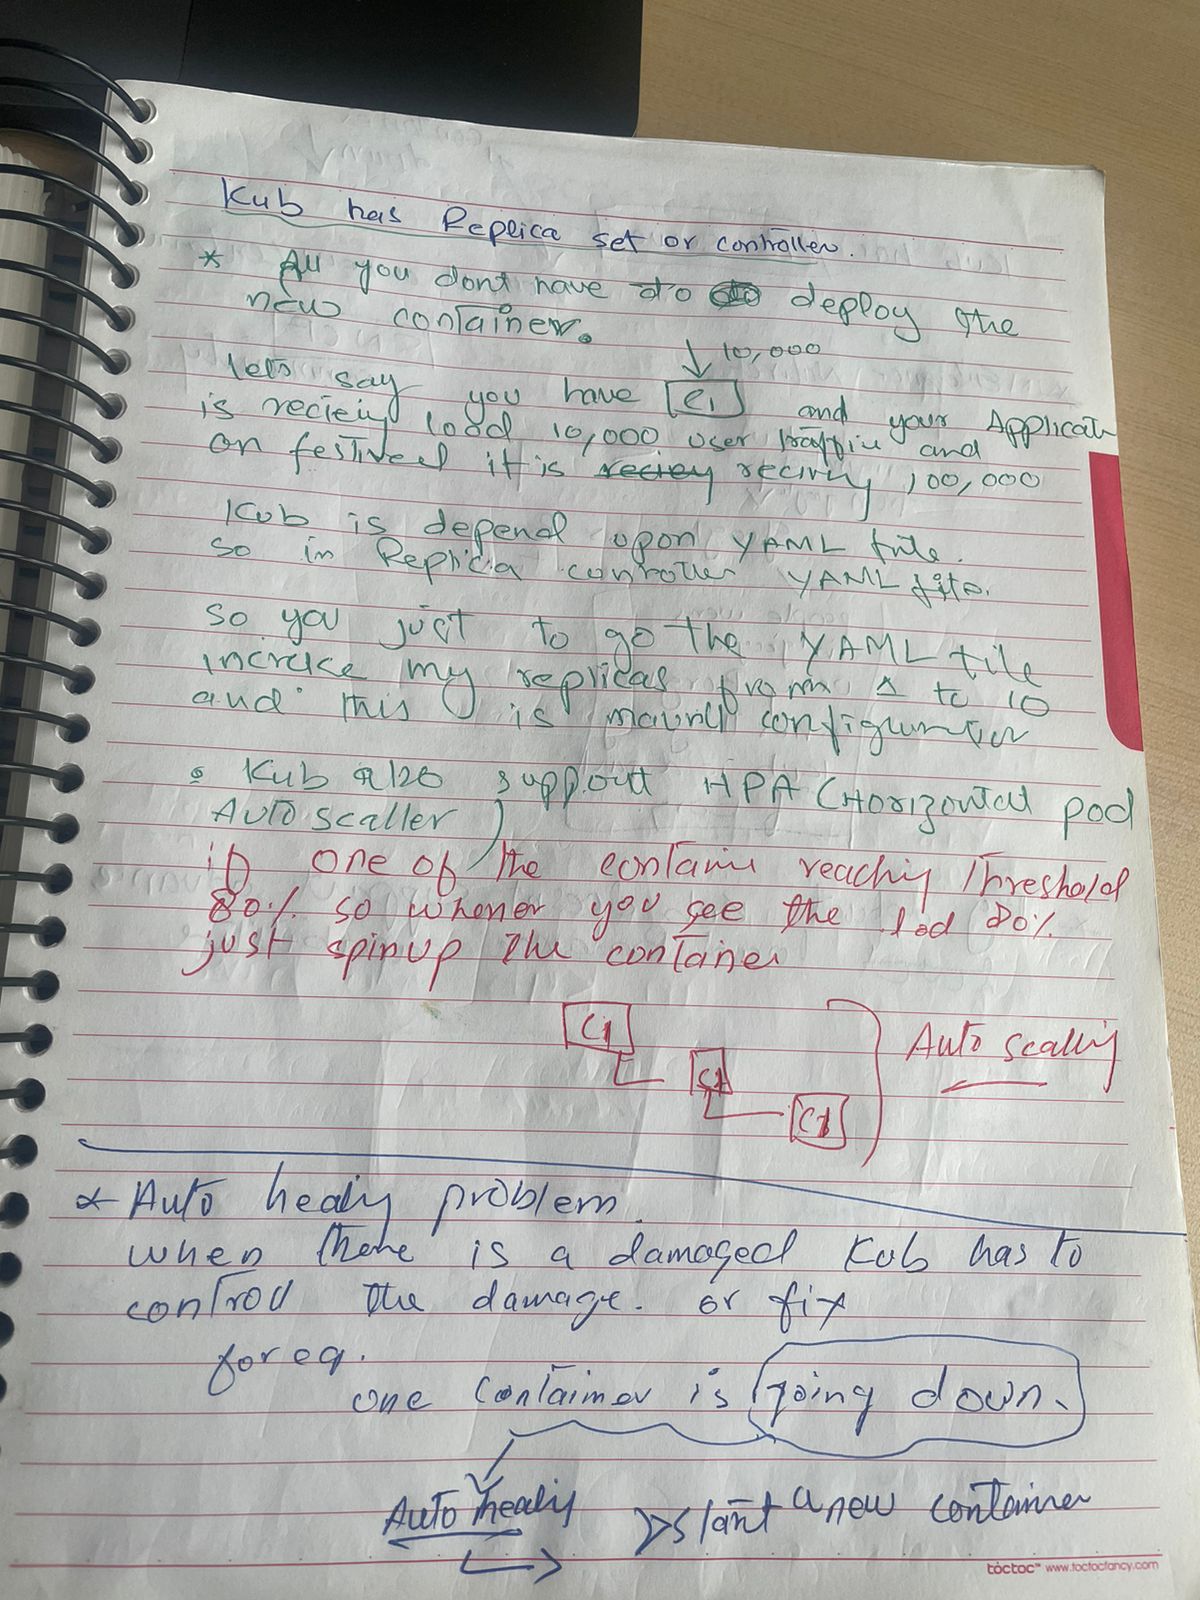 Kub has Replica set or controller.
* All you dont have to deploy the
new container.
↓ 10,000
lets say you have C1 and your Applicati
is recieig load 10,000 user traffic and
on festiveel it is reciey reciving 100,000
Kub is depend upon YAML file.
so in Replica controller YAML file.
so you just to go the YAML file
increke my replicas from 1 to 10
and this is configuration
• Kub also support HPA (Horizontal pod
Auto scaller)
if one of the containe reachig Threshold
80% so whener you see the lod 80%
just spinup the container
C1
Auto scallig
* Auto healig problem.
when there is a damaged Kub has to
control the damage. or fix
for eg.
one container is going down.
Auto healig → start a new container
toctoc™ www.toctocfancy.com